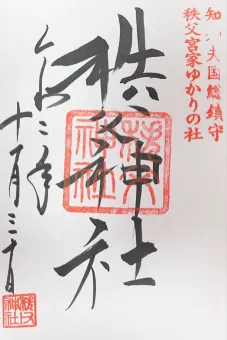 知々夫国総鎮守
秩父宮家ゆかりの社
秩父神社
令和二年
十一月三十日
秩父神社
秩父神社